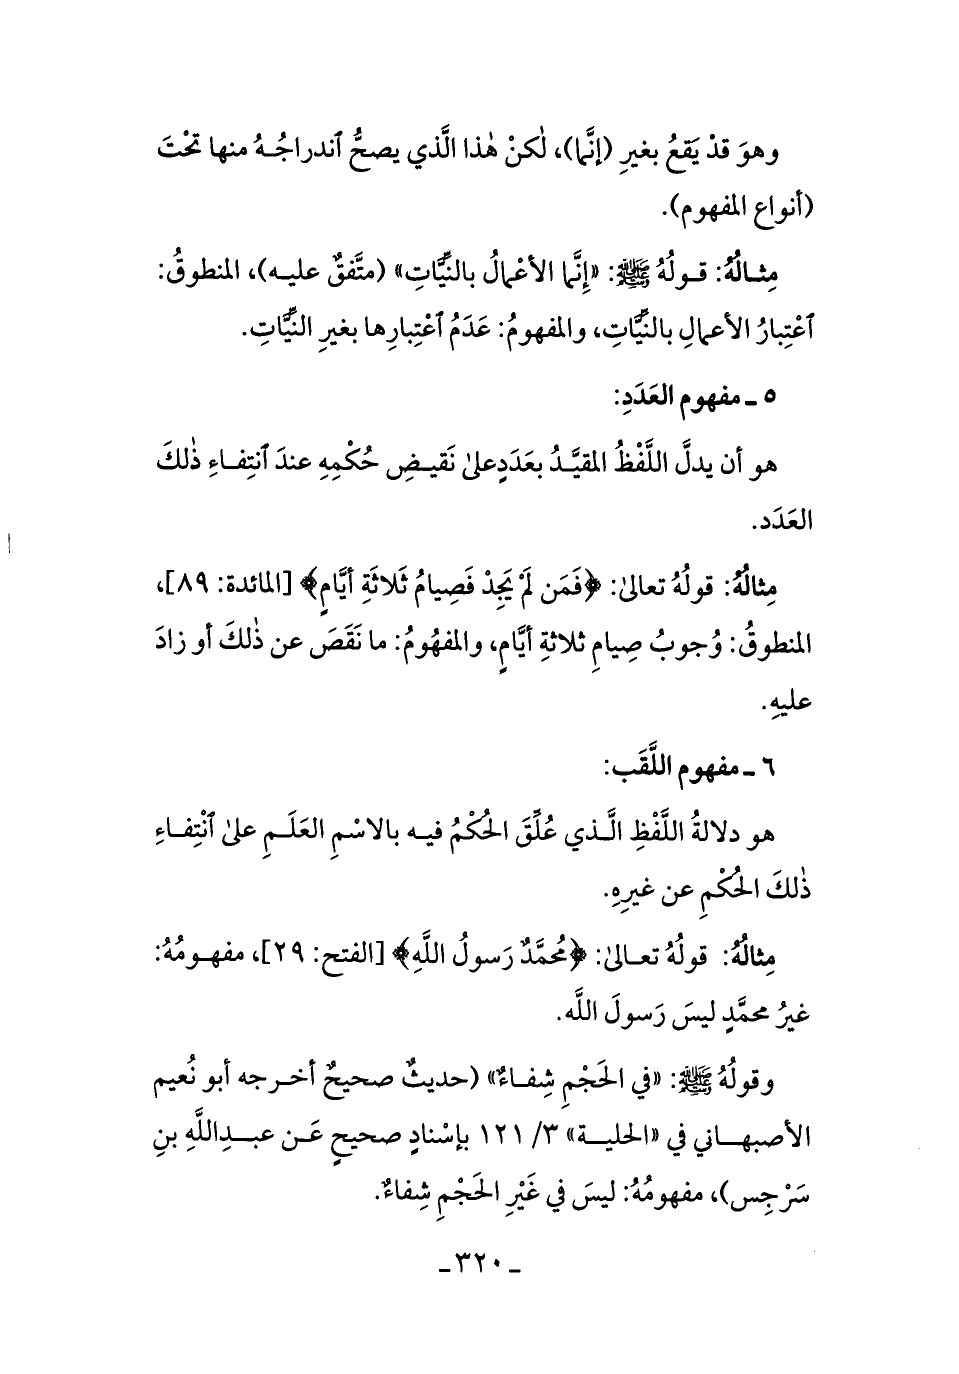 وهوَ قدْ يَقعُ بغيرِ (إنَّما)، لٰكنْ هٰذا الَّذي يصحُّ ٱندراجُـهُ منها تحْتَ
(أنواع المفهوم).
مِثـالُهُ: قـولُهُ ﷺ: «إِنَّما الأعْمالُ بالنِّيَّاتِ» (متَّفقٌ عليـه)، المنطوقُ:
ٱعْتِبارُ الأعمالِ بالنِّيَّاتِ، والمفهومُ: عَدَمُ ٱعْتِبارِها بغيرِ النِّيَّاتِ.
٥ ـ مفهوم العَدَدِ:
هو أن يدلَّ اللَّفْظُ المقيَّـدُ بعَدَدٍ علىٰ نَقيـضِ حُكْمِهِ عندَ ٱنتِفـاءِ ذٰلكَ
العَدَد.
مِثالُهُ: قولُهُ تعالىٰ: ﴿فَمَن لَمْ يَجِدْ فَصِيامُ ثَلاثَةِ أيَّامٍ﴾ [المائدة: ٨٩]،
المنطوقُ: وُجوبُ صِيامِ ثلاثةِ أيَّامٍ، والمفهُومُ: ما نَقَصَ عن ذٰلكَ أو زادَ
عليهِ.
٦ ـ مفهوم اللَّقَب:
هو دلالةُ اللَّفْظِ الَّـذي عُلِّقَ الحُكْمُ فيـه بالاسْمِ العَلَـمِ علىٰ ٱنْتِفـاءِ
ذٰلكَ الحُكْمِ عن غيرِهِ.
مِثالُهُ: قولُهُ تعـالىٰ: ﴿مُحمَّدٌ رَسولُ اللَّهِ﴾ [الفتح: ٢٩]، مفهـومُهُ:
غيرُ محمَّدٍ ليسَ رَسولَ اللَّه.
وقولُهُ ﷺ: «في الحَجْمِ شِفـاءٌ» (حديثٌ صحيحٌ أخـرجه أبو نُعيم
الأصبهـــاني في «الحليــة» ٣/ ١٢١ بإسْنادٍ صحيحٍ عَـن عبــدِاللَّهِ بنِ
سَرْجِس)، مفهومُهُ: ليسَ في غَيْرِ الحَجْمِ شِفاءٌ.
ـ ٣٢٠ ـ